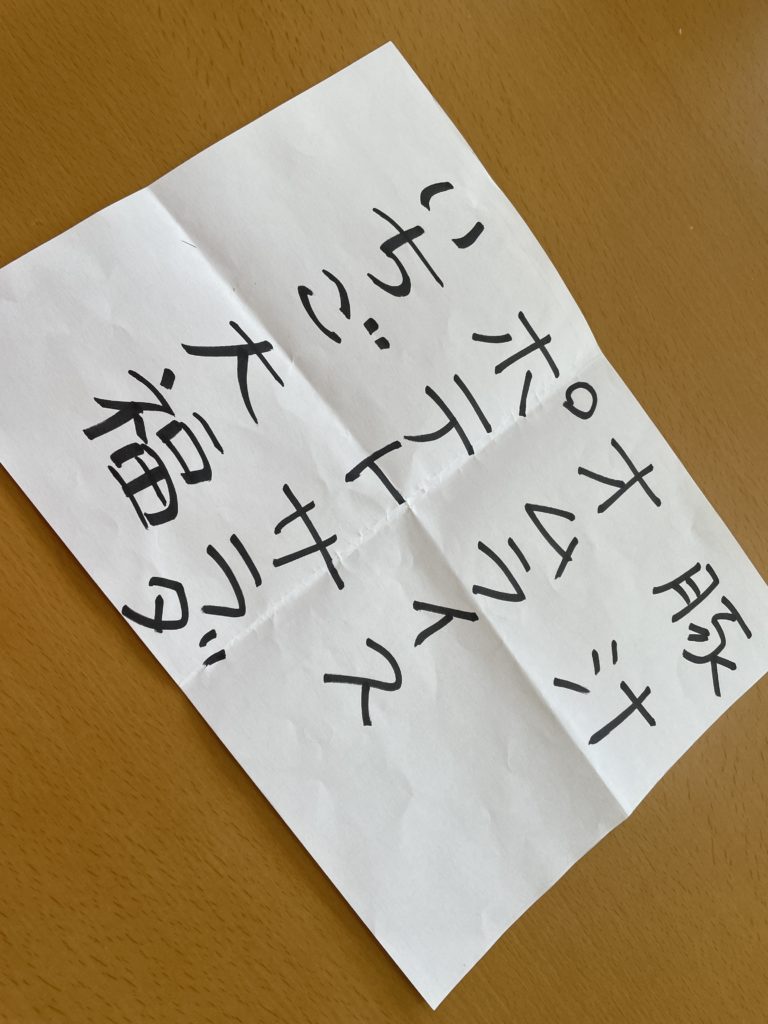 豚汁
オムライス
ポテトサラダ
いちご大福